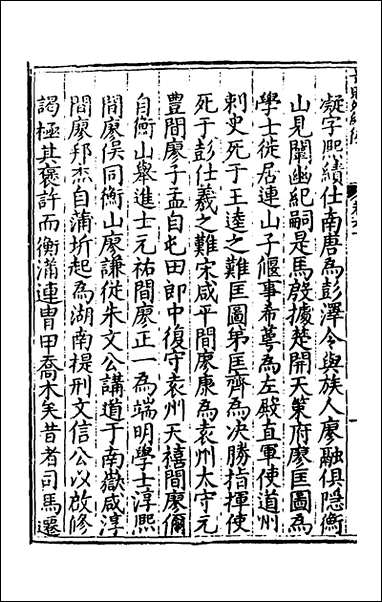 凝字熙績仕南唐為彭澤令與族人廖融俱隱衡
山見闡幽紀嗣是馬殷據楚開天策府廖匡圖為
學士徙居連山子偃事希萼為左殿直軍使道州
刺史死于王逵之難匡圖弟匡齊為决勝指揮使
死于彭仕羲之難宋咸平間廖康為袁州太守元
豐間廖子孟自屯田郎中復守袁州天禧間廖儞
自衡山舉進士元祐間廖正一為端明學士淳熙
間廖俁同衡山廖謙從朱文公講道于南嶽咸淳
間廖邦杰自蒲圻起為湖南提刑文信公以啟修
謁極其褒許而衡瀟連胄甲喬木矣昔者司馬遷